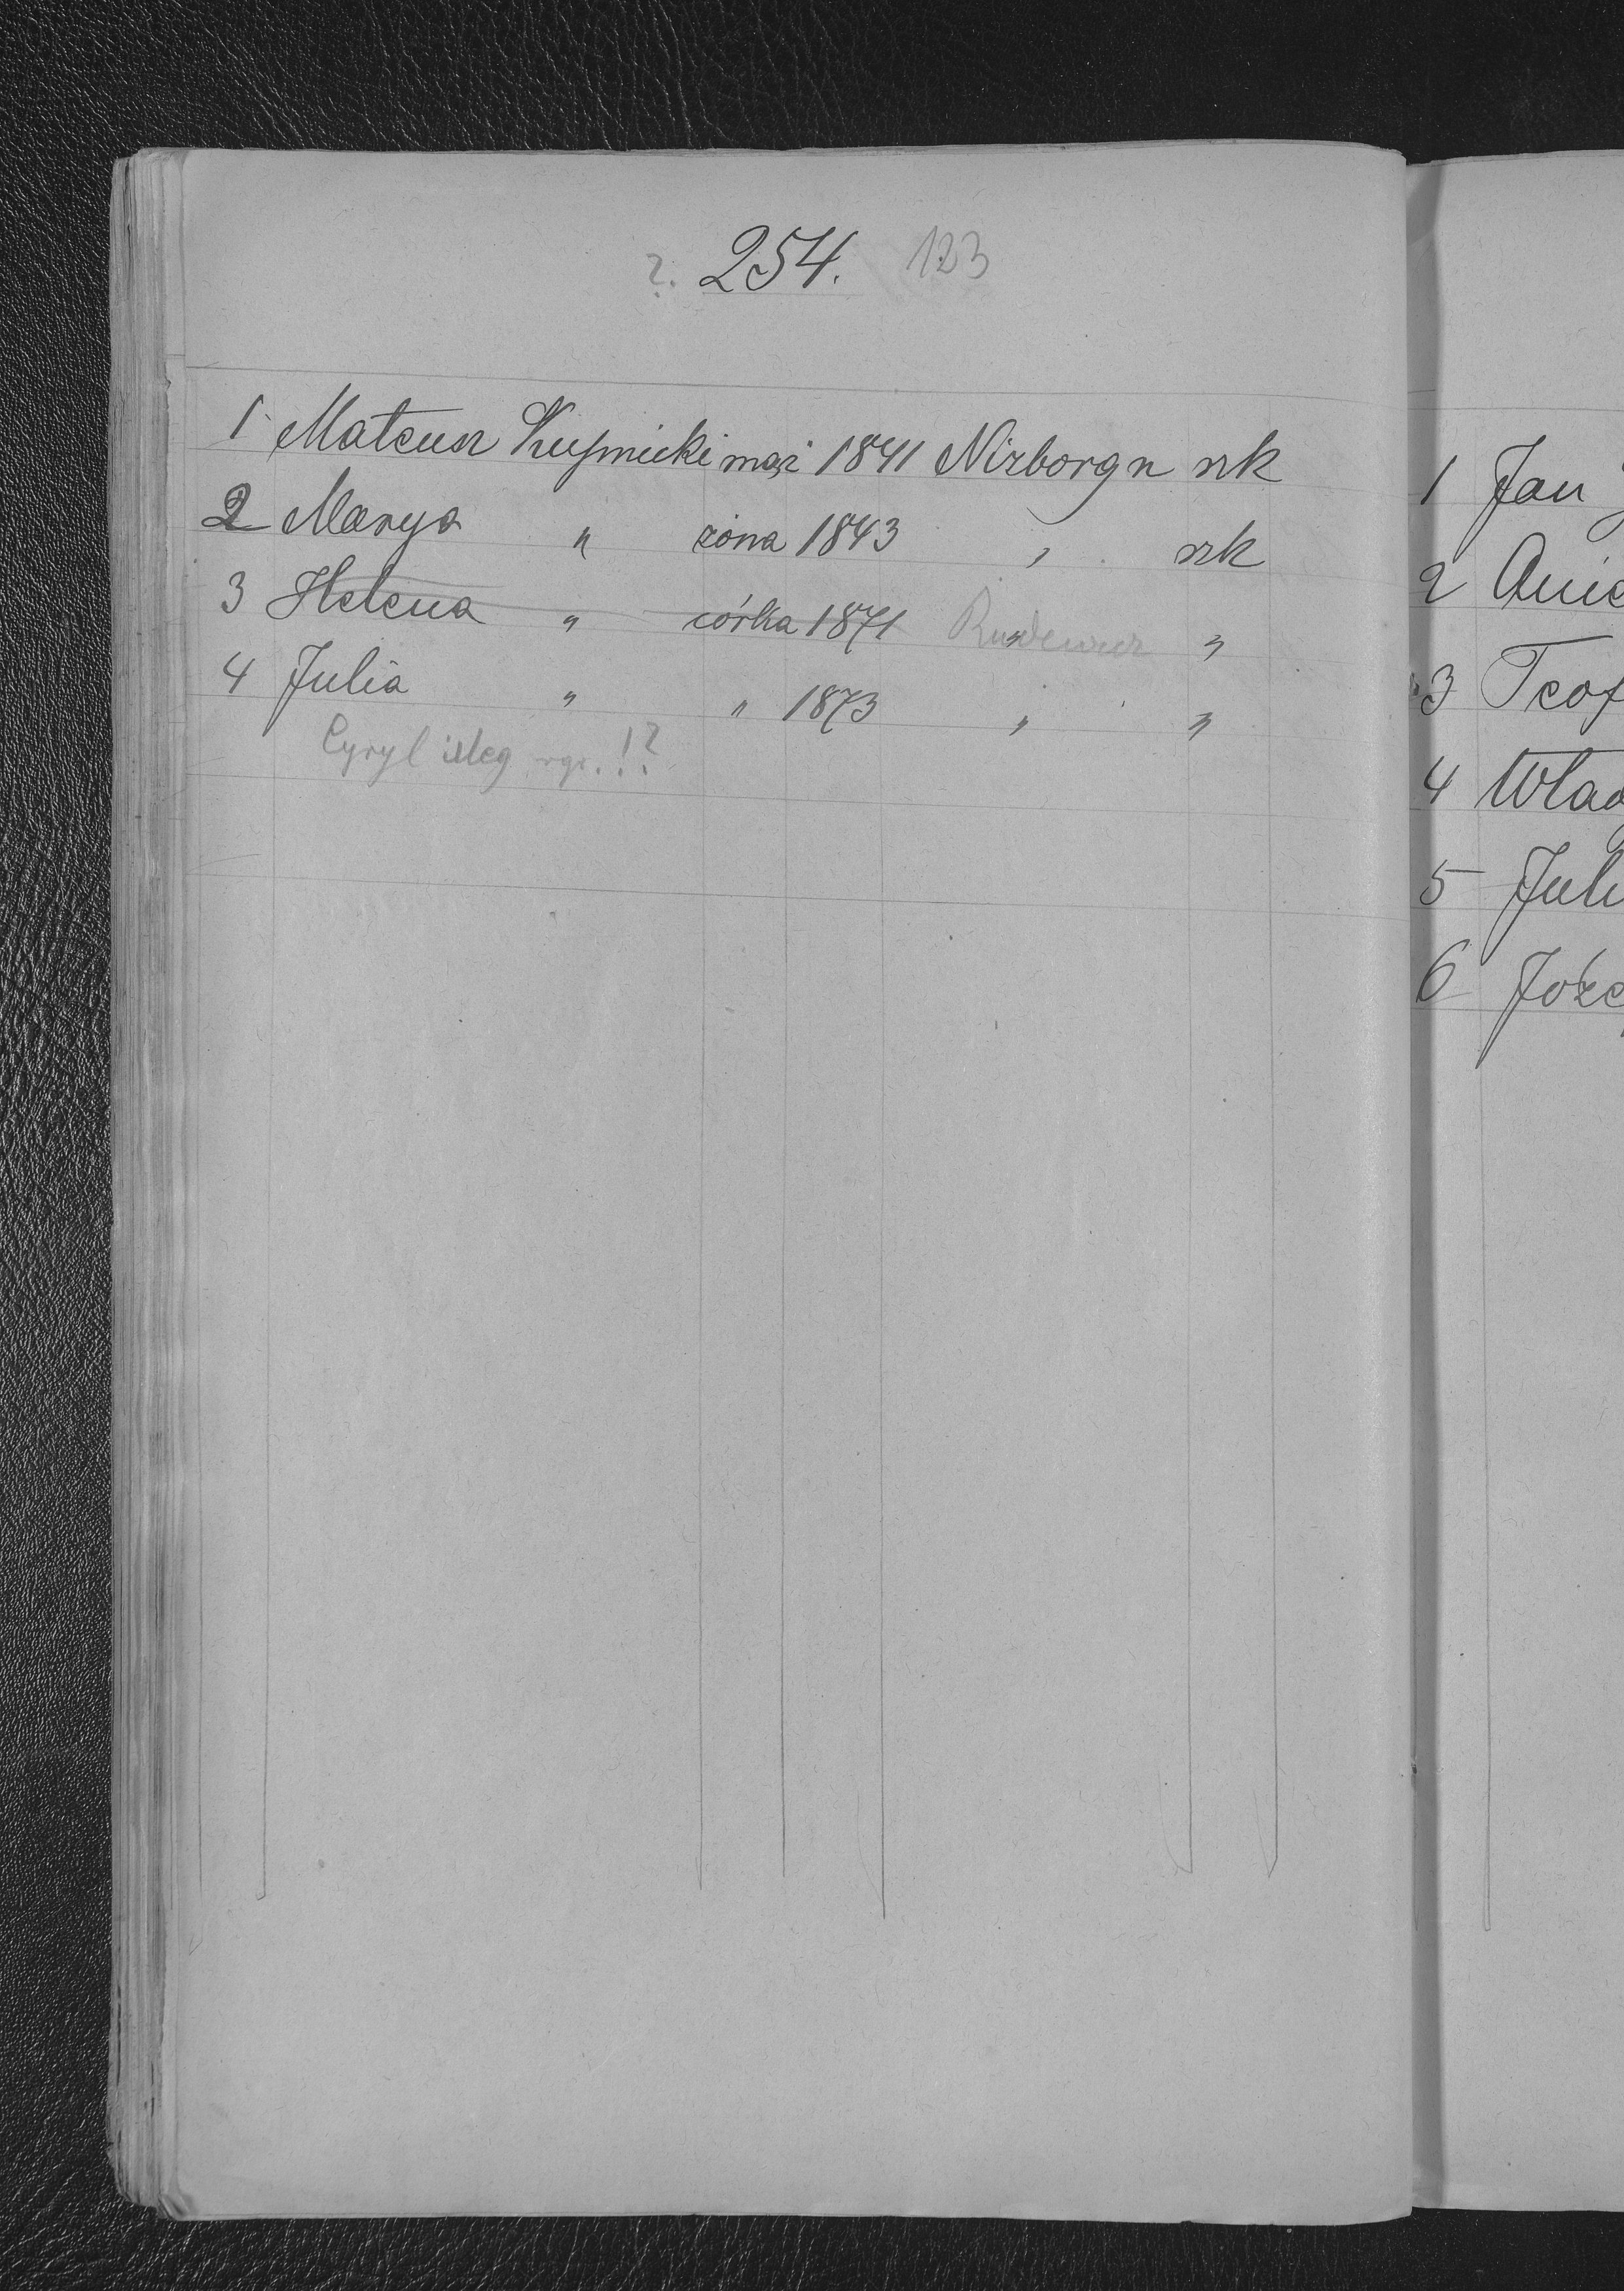 ?. 254. 123
1 Mateusz Kuśnicki mąż 1841 Niżborg n rzk
2 Marya " żona 1843 " rzk
3 Helena " córka 1871 " "
4 Julia " " 1873 " "
Cyryl illeg !?
1 Jan
2 Anie
3 Teof
4 Wład
5 Juli
6 Józe